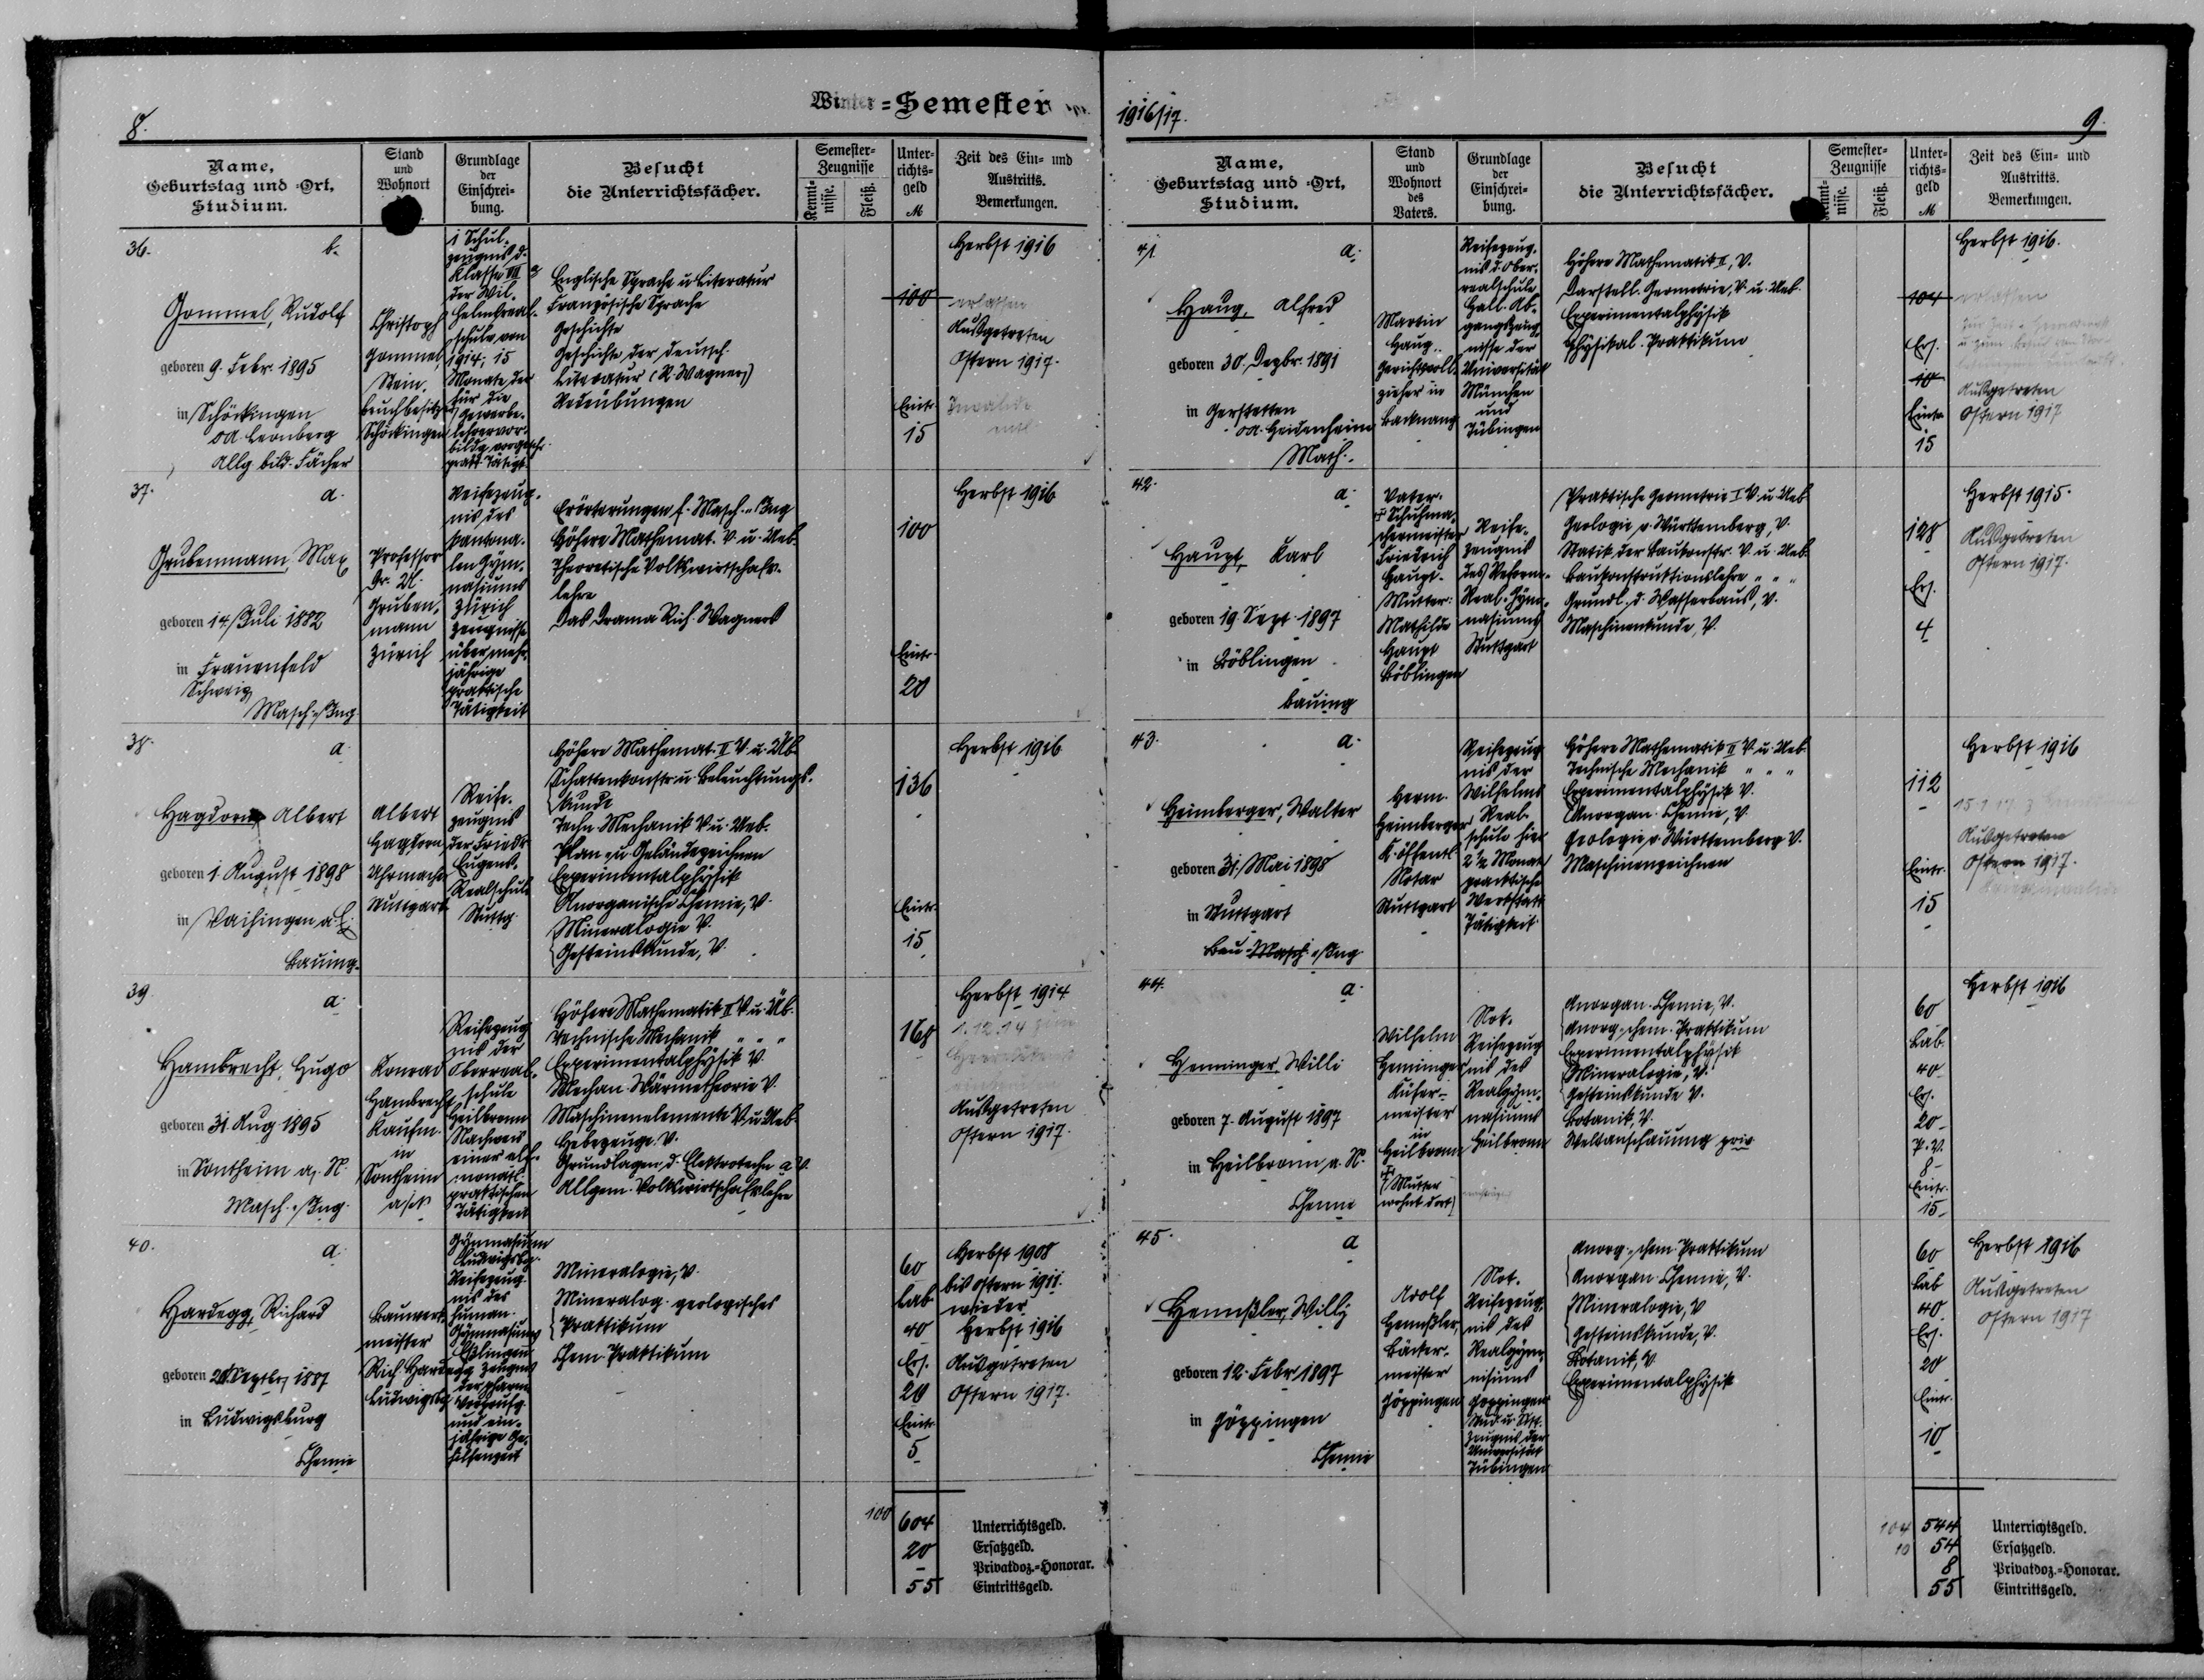 Winter-Semester
8.
Name,
Geburtstag und -Ort,
Studium.
Stand
und
Wohnort
Grundlage
der
Einschrei-
bung.
Besucht
die Unterrichtsfächer.
Semester-
Zeugnisse
Kennt-
nisse.
Fleiß.
Unter-
richts-
geld
M
Zeit des Ein- und
Austritts.
Bemerkungen.
36.
b.
Gommel, Rudolf
geboren 9. Febr. 1895
in Schöckingen
OA. Leonberg
Allg. bild. Fächer
Christoph
Gommel,
Stein-
bruchbesitzer
Schöckingen
1 Schul-
zeugnis d.
Klasse VIII
der Wil-
helmsreal-
schule von
1914; 15
Monate der
für die
Gewerbe-
lehrervor-
bildg. vorgeschr.
prakt. Tätigk.
Englische Sprache u. Literatur
Französische Sprache
Geschichte
Geschichte der deutsch.
Literatur (R. Wagner)
Redeübungen
100
Eintr.
15
Herbst 1916
erlassen
Ausgetreten
Ostern 1917.
Invalide
37.
a.
Grubenmann, Max
geboren 14. Juli 1882
in Frauenfeld
Schweiz
Masch.-Ing.
Professor
Dr. U.
Gruben-
mann
Zürich
Reifezeug-
nis des
kantona-
len Gym-
nasiums
Zürich
Zeugnisse
über mehr-
jährige
praktische
Tätigkeit
Erörterungen f. Masch.-Ing
Höhere Mathemat. V. u. Ueb.
Theoretische Volkswirtschafts-
lehre
Das Drama Rich. Wagners
100
Eintr.
20
Herbst 1916
38.
a.
Hagdorn Albert
geboren 1. August 1898
in Vaihingen a/E.
Bauing.
Albert
Hagdorn,
Uhrmacher
Stuttgart
Reife-
zeugnis
der Friedr.
Eugens-
Realschule
Stuttg.
Höhere Mathemat. II V. u. Üb.
Schattenkonstr. u. Beleuchtungs-
kunde
Techn. Mechanik V. u. Ueb.
Plan- u. Geländezeichnen
Experimentalphysik
Anorganische Chemie, V.
Mineralogie V.
Gesteinskunde, V.
136
Eintr.
15
Herbst 1916
39
a.
Hambrecht, Hugo
geboren 31. Aug. 1895
in Sontheim a/N.
Masch.-Ing.
Konrad
Hambrecht
Kaufm.
in
Sontheim
a/N.
Reifezeug-
nis der
Oberreal-
schule
Heilbronn
Nachweis
einer elf-
monatl.
praktischen
Tätigkeit
Höhere Mathematik II V. u. Üb.
Technische Mechanik " " "
Experimentalphysik V.
Mechan. Wärmetheorie V.
Maschinenelemente V. u. Ueb.
Hebezeuge V.
Grundlagen d. Elektrotechn. a V.
Allgem. Volkswirtschaftslehre
168
Herbst 1914
1.12.14 zum
Heeresdienst
Ausgetreten
Ostern 1917.
40.
a.
Hardegg, Richard
geboren 20. Septbr. 1887
in Ludwigsburg
Chemie
Bauwerk-
meister
Rich. Hardegg
Ludwigsbg.
Gymnasium
Ludwigsbg.
Reifezeug-
nis des
human.
Gymnasiums
Eßlingen
Zeugnis
der pharm.
Vorprüfg.
und ein-
jährige Ge-
hilfenzeit
Mineralogie, V.
Mineralog. geologisches
Praktikum
Chem. Praktikum
60
Lab.
40
Ers.
20
Eintr.
5
Herbst 1908
bis Ostern 1911.
wieder
Herbst 1916
Ausgetreten
Ostern 1917.
100 604 Unterrichtsgeld.
20 Ersatzgeld.
– Privatdoz.-Honorar.
55 Eintrittsgeld.
1916/17.
9.
Name,
Geburtstag und -Ort,
Studium.
Stand
und
Wohnort
des
Vaters.
Grundlage
der
Einschrei-
bung.
Besucht
die Unterrichtsfächer.
Semester-
Zeugnisse
Kennt-
nisse.
Fleiß.
Unter-
richts-
geld
M
Zeit des Ein- und
Austritts.
Bemerkungen.
41.
a.
Haug, Alfred
geboren 30. Dezbr. 1891
in Gerstetten
OA. Heidenheim
Math.
Martin
Haug,
Gerichtsvoll-
zieher in
Backnang
Reifezeug-
nis d. Ober-
realschule
Hall. Ab-
gangszeug-
nisse der
Universität
München
und
Tübingen
Höhere Mathematik II, V.
Darstell. Geometrie, V. u. Ueb.
Experimentalphysik
Physikal. Praktikum
104
Ers.
10
Eintr.
15
Herbst 1916.
erlassen
Ausgetreten
Ostern 1917
42.
a.
Haupt, Karl
geboren 19. Sept. 1897
in Böblingen
Bauing
Vater:
✝ Schuhma-
chermeister
Friedrich
Haupt.
Mutter:
Mathilde
Haupt
Böblingen
Reife-
zeugnis
des Reform-
Real-Gym-
nasiums
Stuttgart
Praktische Geometrie I V. u. Ueb.
Geologie v. Württemberg, V.
Statik der Baukonstr. V. u. Ueb.
Baukonstruktionslehre " " "
Grundl. d. Wasserbaus, V.
Maschinenkunde, V.
128
Ers.
4
Herbst 1915.
Ausgetreten
Ostern 1917.
43.
a.
Heimberger, Walter
geboren 31. Mai 1898
in Stuttgart
Bau-Masch.-Ing.
Herm.
Heimberger
K. öffentl.
Notar
Stuttgart
Reifezeug-
nis der
Wilhelms
Real-
schule hier
2 1/2 Monat
praktische
Werkstatt
Tätigkeit
Höhere Mathematik II V. u. Ueb.
Technische Mechanik " " "
Experimentalphysik V.
Anorgan. Chemie, V.
Geologie v. Württemberg V.
Maschinenzeichnen
112
Eintr.
15
Herbst 1916
Ausgetreten
Ostern 1917.
44.
a.
Henninger Willi
geboren 7. August 1897
in Heilbronn a. N.
Chemie
Wilhelm
Henninger
Küfer-
meister
in
Heilbronn
✝
(Mutter
wohnt dort)
Not-
Reifezeug-
nis des
Realgym-
nasiums
Heilbronn
Anorgan. Chemie, V.
Anorg.-chem. Praktikum
Experimentalphysik
Mineralogie, V.
Gesteinskunde V.
Botanik, V.
Weltanschauung priv
60
Lab.
40
Ers.
20
P.V.
8
Eintr.
15
Herbst 1916
45.
a
Hennßler, Willy
geboren 12. Febr. 1897
in Göppingen
Chemie
Adolf
Hennßler,
Bäcker-
meister
Göppingen
Not-
Reifezeug-
nis des
Realgym-
nasiums
Göppingen
Zeugnis der
Universität
Tübingen
Anorg.-chem. Praktikum
Anorgan. Chemie, V.
Mineralogie, V
Gesteinskunde, V.
Botanik, V
Experimentalphysik
60
Lab
40
Ers.
20
Eintr.
10
Herbst 1916
Ausgetreten
Ostern 1917
104 544 Unterrichtsgeld.
10 54 Ersatzgeld.
8 Privatdoz.-Honorar.
55 Eintrittsgeld.